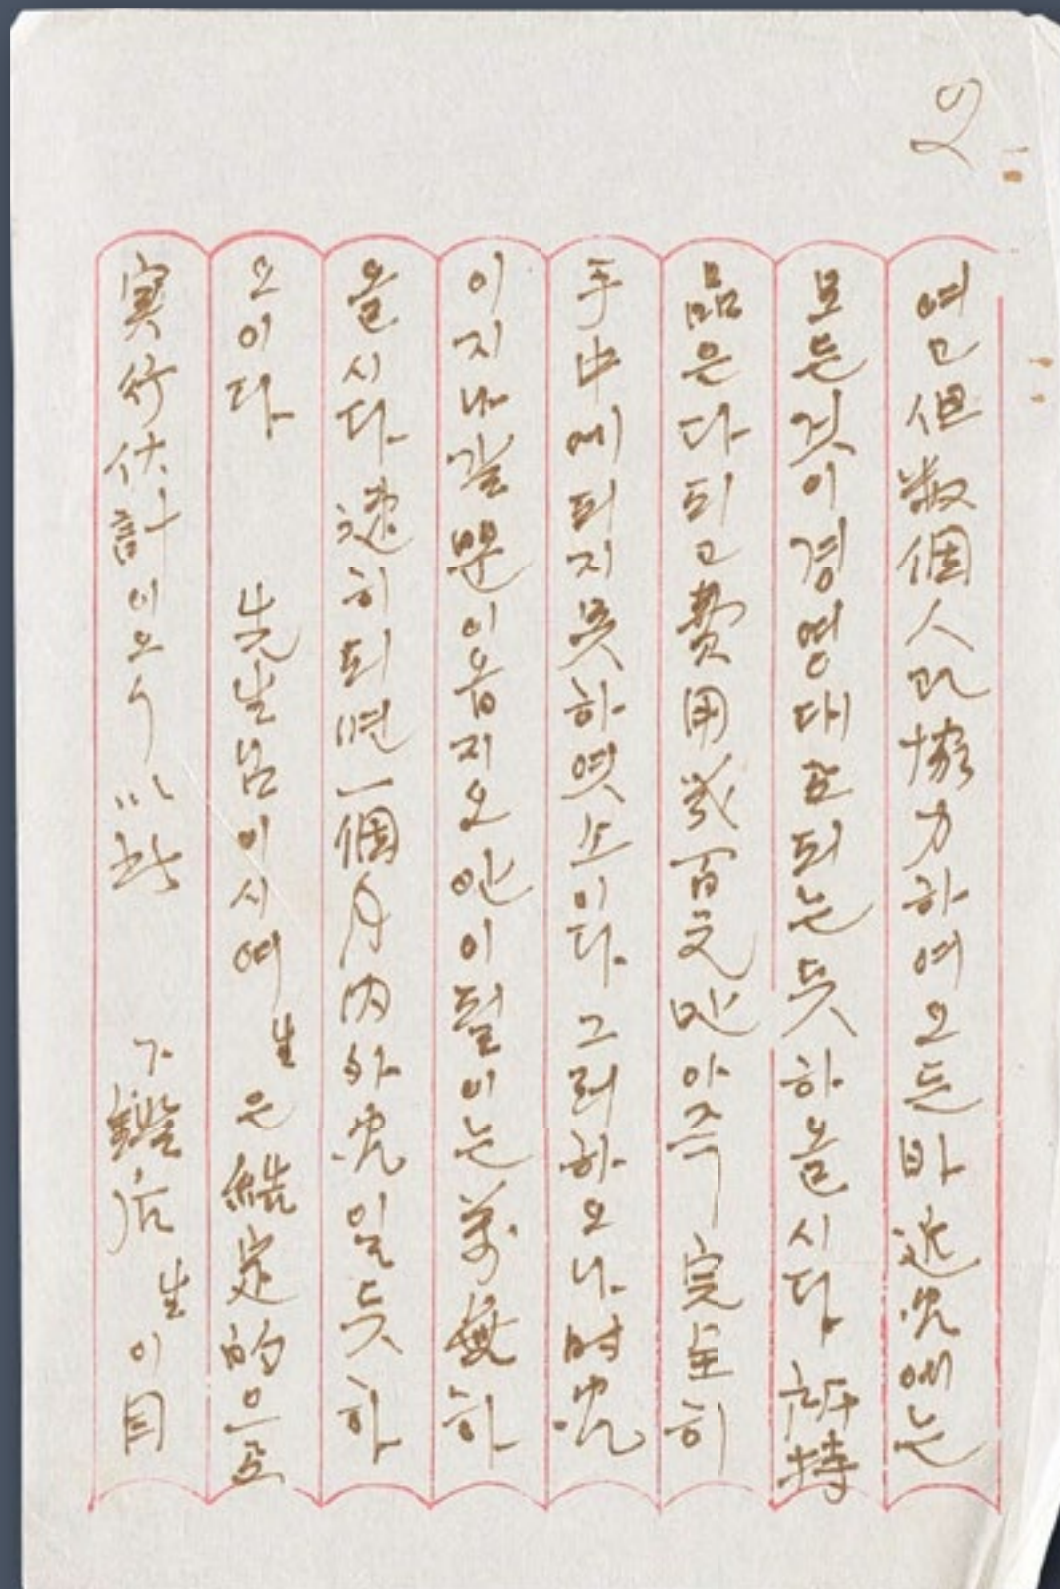 2
여고 但 數個人과 協力하여 오든바 近況에는
모든 것이 경영대로 되는 듯 하옵시다 所持
品은 다 되고 費用 몇 百元만 아주 完全히
手中에 되지 못하엿소이다. 그러하오나 時況
이 지나갈 뿐이옵지오 안이될 이는 萬無하
올시다. 速히 되면 一個月 內外 일 듯 하
오이다 先生님이시여 生은 結定的으로
實行伏計이오 以此 下鑑后 生이 目